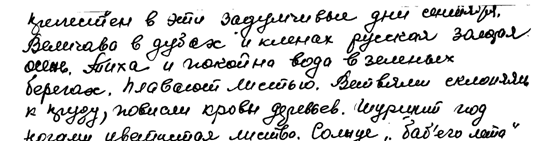 чудесен в эти задумчивые дни сентября.
Величава в дубах и кленах русская золотая
осень. Тиха и покойна вода в зеленых
берегах. Плавают листья. Ветвями склонились
к пруду, повисли кроны деревьев. Шуршит под
ногами цветистая листва. Солнце „баб'его лета“